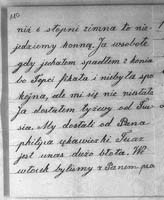 niż 6 stopni zimna to nie
jedziemy konną. Ja wsobote
gdy jechałem spadłem z konia
bo Topci fikała i niebyła spo
kojna, ale mi się nic niestało
Ja dostałem łyżwy od Tu
sia. My dostali od Pana
philipa rękawiczki. Teraz
jest unas dużo błota. W
wtorek byliśmy z Panem